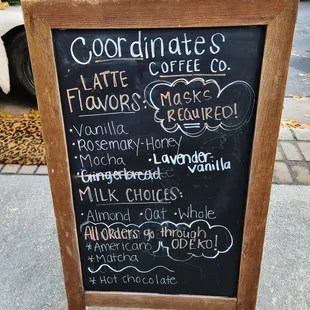 Coordinates
COFFEE CO.
LATTE
FLAVORS:
MASKS
REQUIRED!
·Vanilla
·Rosemary-Honey
·Mocha ·Lavender
vanilla
·Gingerbread
MILK CHOICES:
·Almond ·Oat ·Whole
All orders go through
ODEKO!
*Americano
*Matcha
*Hot chocolate